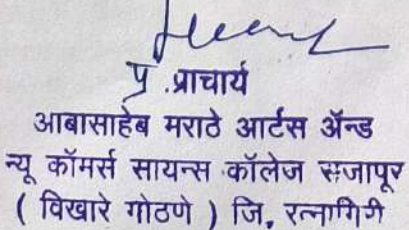 प्र .प्राचार्य
आबासाहेब मराठे आर्टस ॲन्ड
न्यू कॉमर्स सायन्स कॉलेज राजापूर
( विखारे गोठणे ) जि, रत्नागिरी